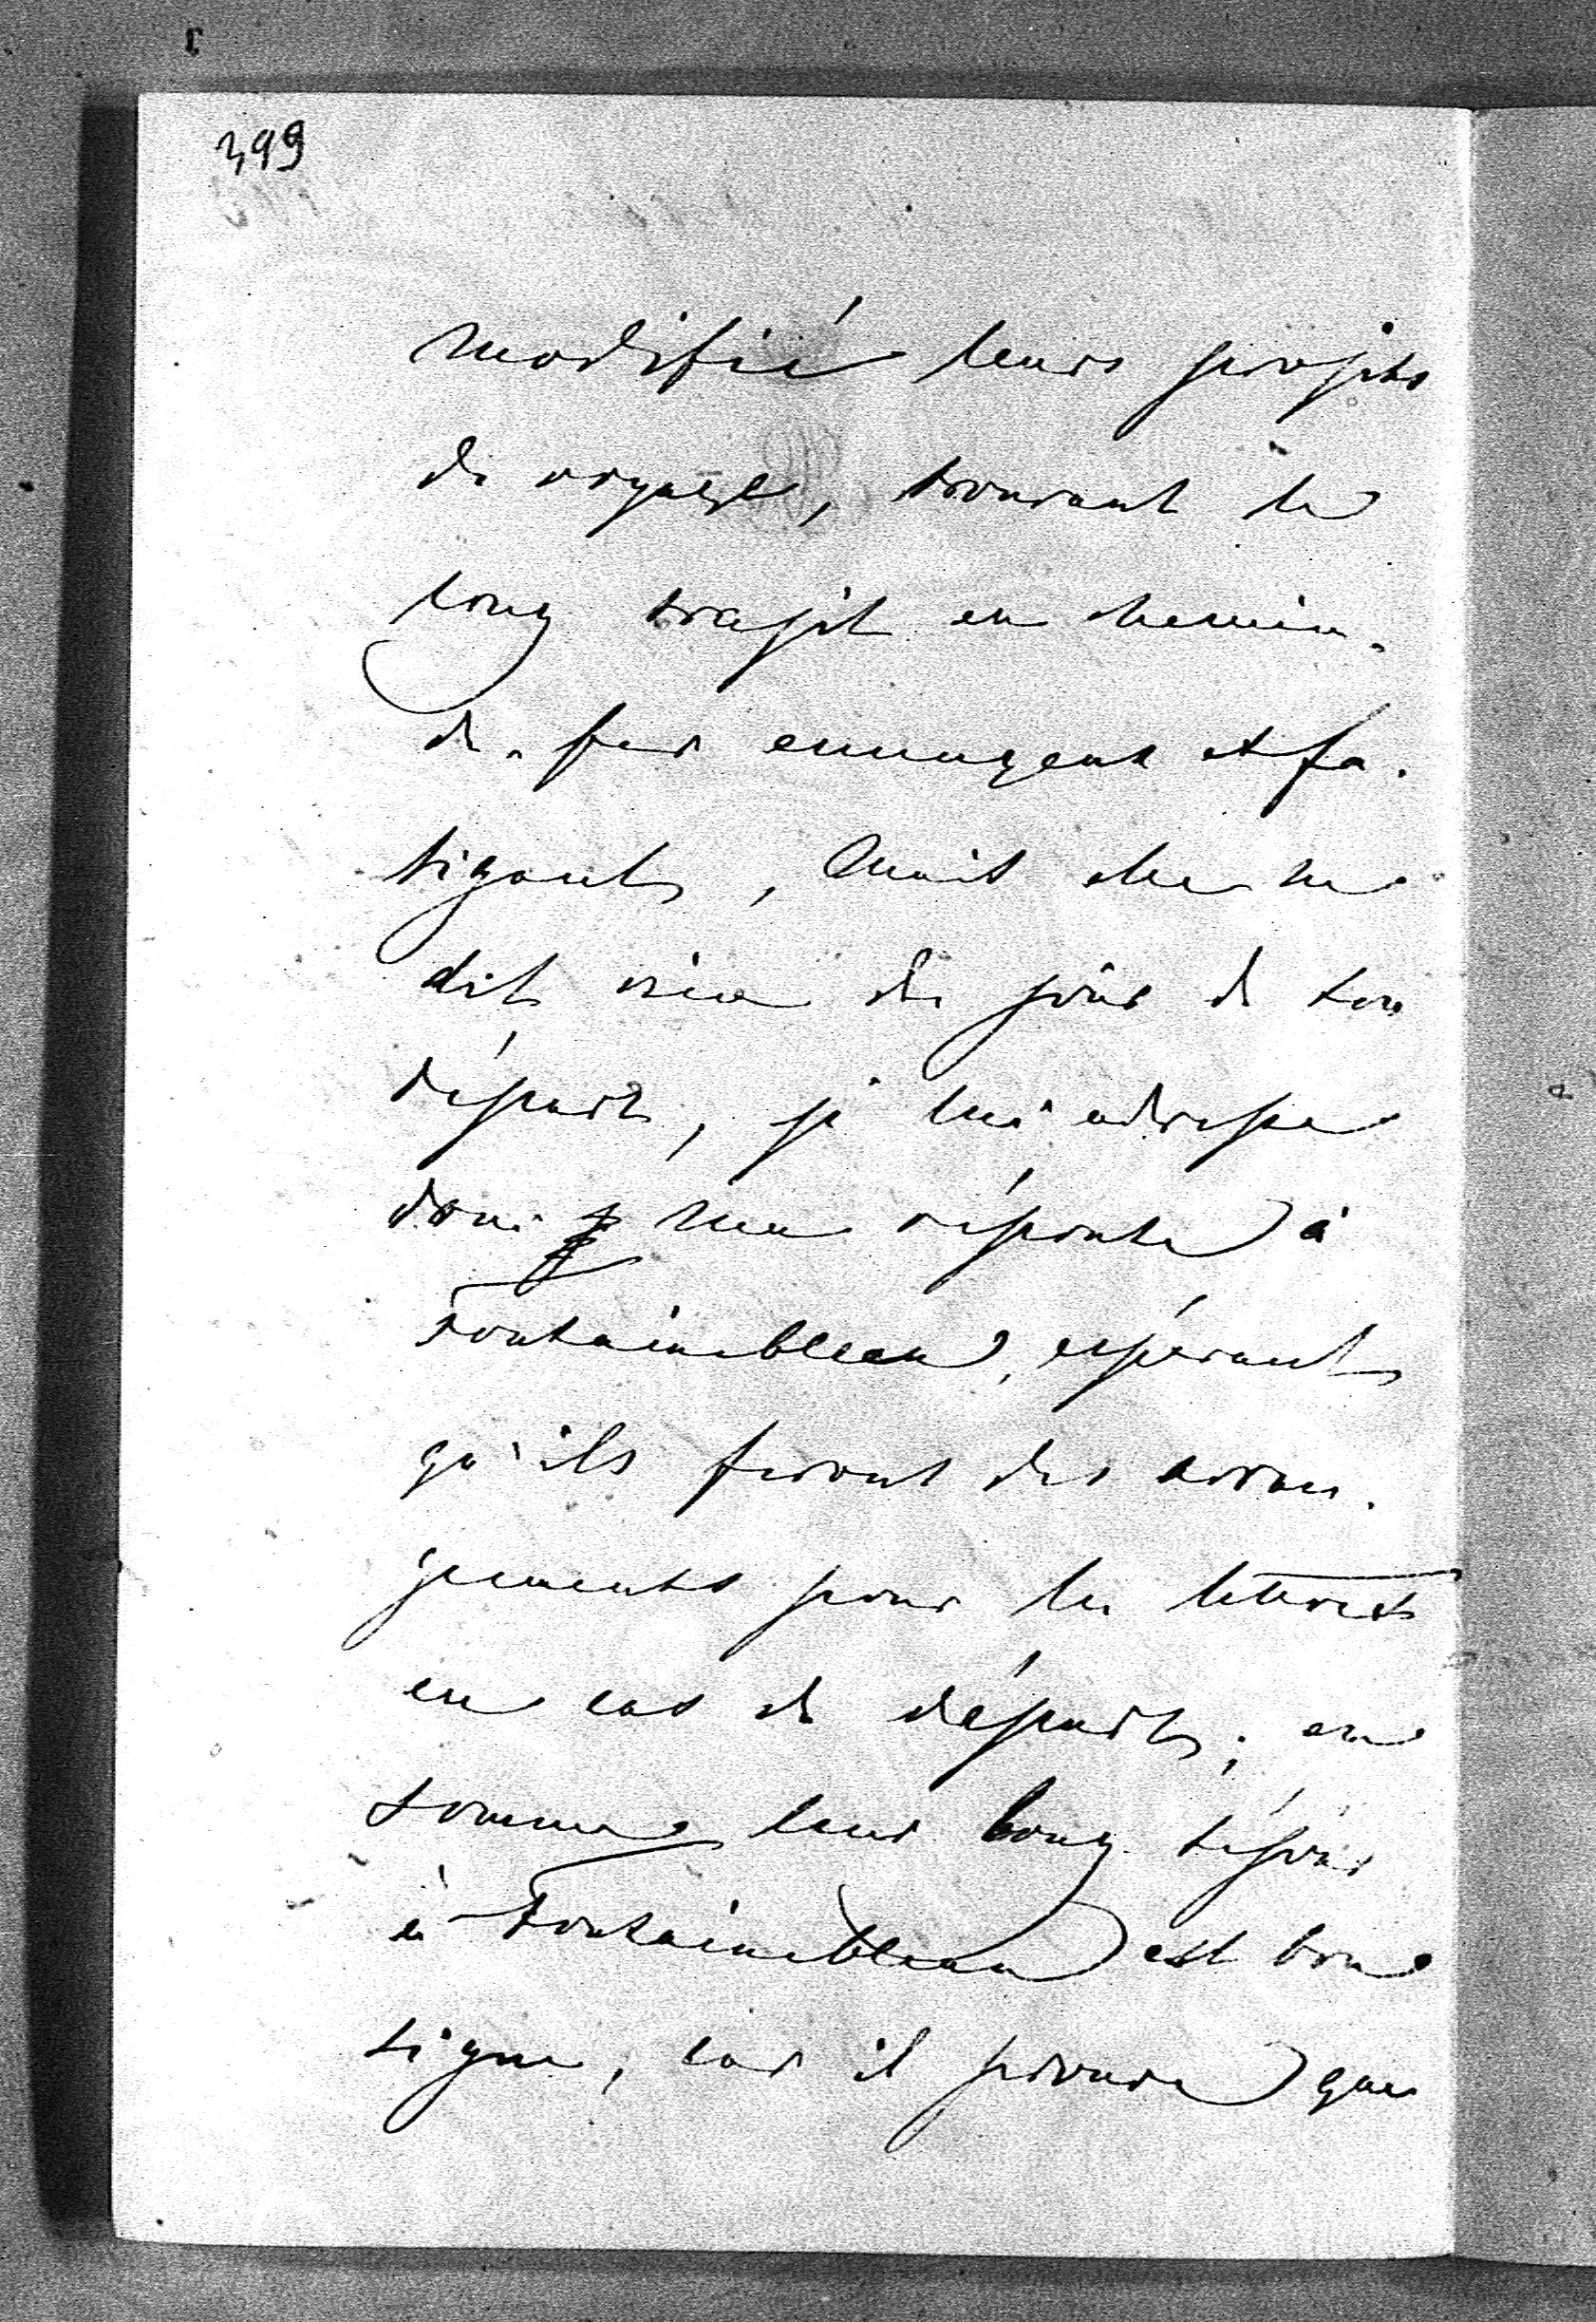 399
modifié leurs projets
de voyage, trouvant le
long trajet en chemin-
de-fer ennuyeux et fa-
tigant, mais elle ne
dit rien du jour de son
départ, je lui adresse
donc ma réponse à
Fontainebleau, espérant
qu'ils feront des arran-
gements pour les lettres
en cas de départ; en
somme leur long séjour
à Fontainebleau est bon
signe, car il prouve que